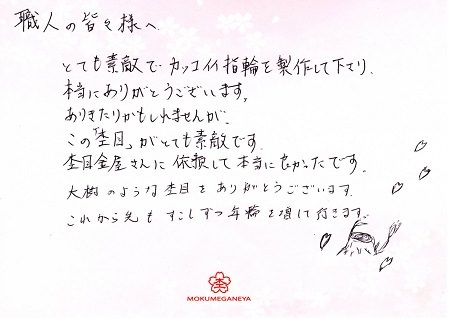 職人の皆々様へ
とても素敵でカッコイイ指輪を製作して下さり、
本当にありがとうございます。
ありきたりかもしれませんが、
この「杢目」がとても素敵です。
杢目金屋さんに依頼して本当によかったです。
大樹のような杢目をありがとうございます。
これから先もすこしずつ年輪を増して行きます。
杢
MOKUMEGANEYA